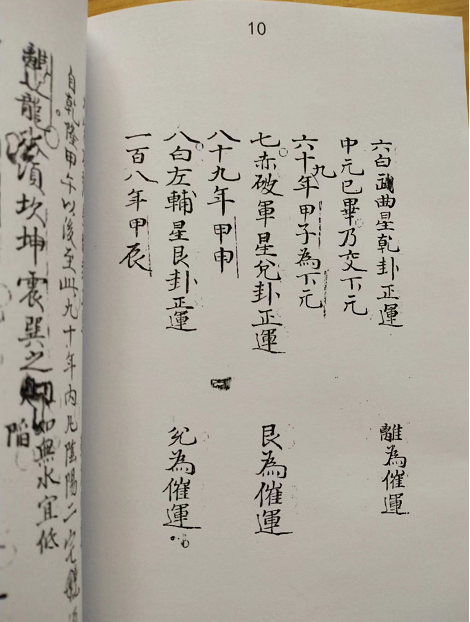 10
六白武曲星乾卦正運 離為催運
中元已畢乃交下元
六十九年甲子為下元
七赤破軍星兌卦正運 艮為催運
八十九年甲申
八白左輔星艮卦正運 兌為催運
一百八年甲辰
自乾隆甲午以後至此九十年內凡陰陽二宅
龍 須坎坤震巽之 如無水宜低
陷